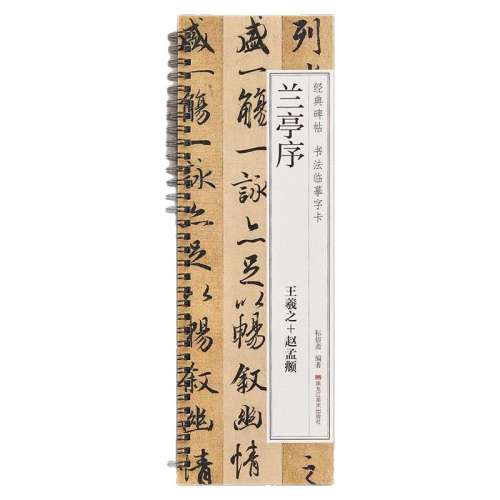 列
之
盛一觴一詠亦足以暢敘幽情
盛一觴一詠亦足以暢敘幽情
经典碑帖 书法临摹字卡
兰亭序
王羲之+赵孟頫
编著
黑龙江美术出版社